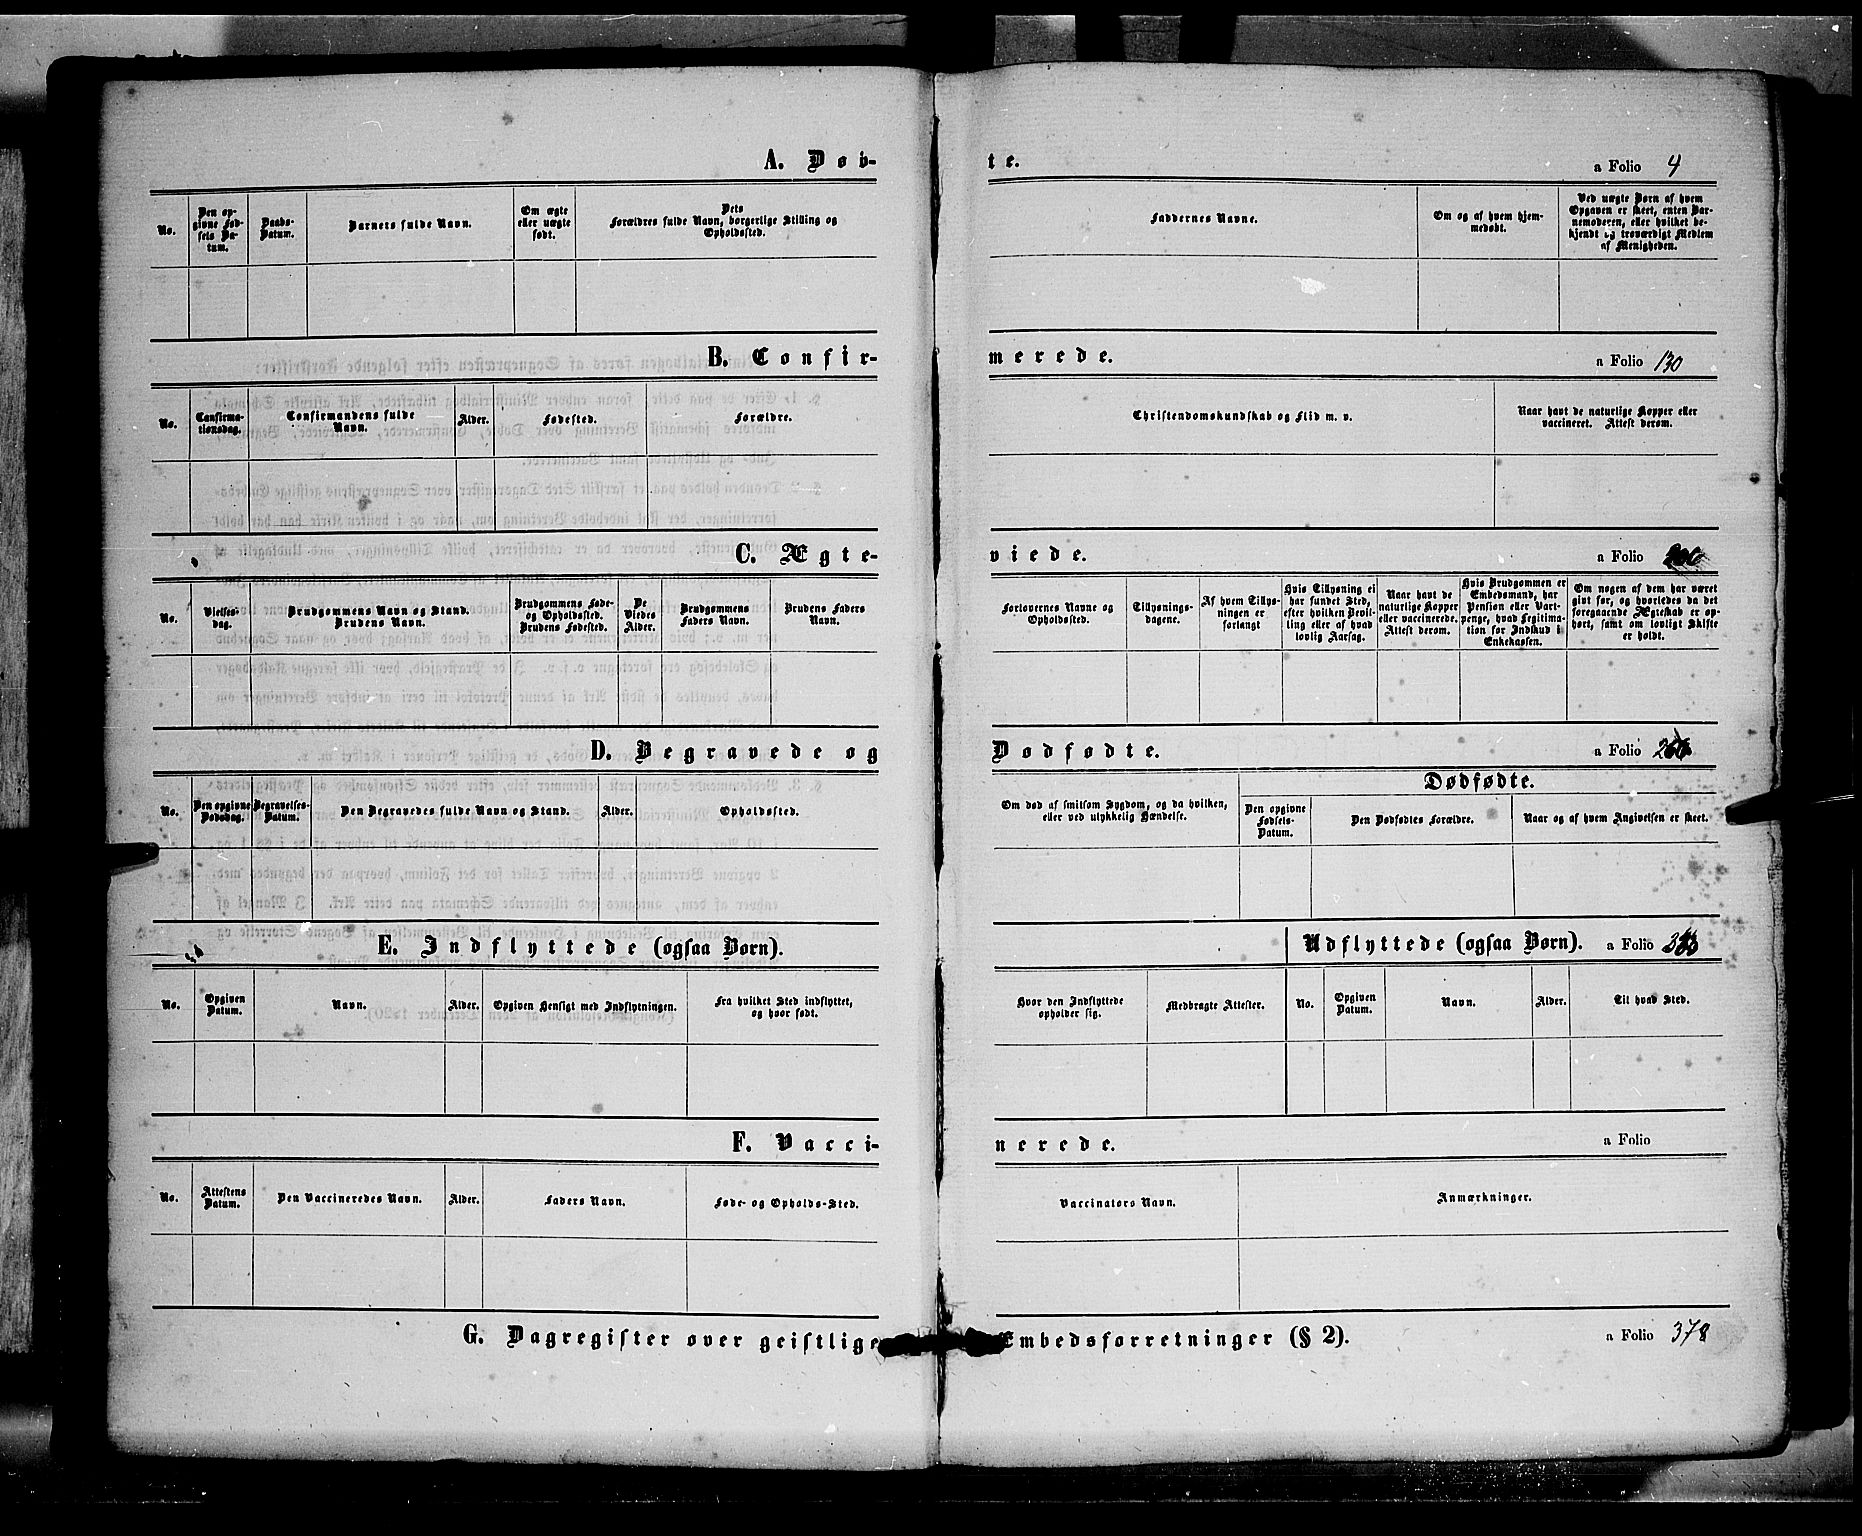 A. Døb-
te.
a Folio 4
No.
Den op-
givne Fød-
sels Da-
tum.
Daabs-
Datum.
Barnets fulde Navn.
Om ægte
eller uægte
født.
Dets
Forældres fulde Navn, borgerlige Stilling og
Opholdssted.
Faddernes Navne.
Om og af hvem hjem-
medøbt.
Ved uægte Børn af hvem
Opgaven er skeet, enten Bar-
nemoderen, eller hvilket be-
kjendt og troværdigt Medlem
af Menigheden.
B. Confir-
merede.
a Folio 130
No.
Confirma-
tionsdag.
Confirmandens fulde
Navn.
Alder.
Fødested.
Forældre.
Christendomskundskab og Flid m. v.
Naar havt de naturlige Kopper eller
vaccineret. Attest derom.
C. Ægte-
viede.
a Folio
No.
Vielses-
dag.
Brudgommens Navn og Stand.
Brudens Navn.
Brudgommens Føde-
og Opholdssted.
Brudens Fødested.
De
Viedes
Alder.
Brudgommens
Faders Navn.
Brudens Faders
Navn.
Forlovernes Navne og
Opholdssted.
Tillysnings-
dagene.
Af hvem Tillys-
ningen er
forlangt
Hvis Tillysning ei
har fundet Sted,
efter hvilken Bevil-
ling eller af hvad
lovlig Aarsag.
Naar havt de
naturlige Kopper
eller vaccinerede.
Attest derom.
Hvis Brudgommen er
Embedsmand, har
Pension eller Vart-
penge, hvad Legitima-
tion for Indskud i
Enkekassen.
Om nogen af dem har været
gift før, og hvorledes da det
foregaaende Ægteskab er op-
hørt, samt om lovligt Skifte
er holdt.
D. Begravede og
Dødfødte.
a Folio
No.
Den opgivne
Dødsdag.
Begravelses-
Datum.
Den Begravedes fulde Navn og Stand.
Alder.
Opholdssted.
Om død af smitsom Sygdom, og da hvilken,
eller ved ulykkelig Hændelse.
Dødfødte.
Den opgivne
Fødsels-
Datum.
Den Dødfødtes Forældre.
Naar og af hvem Angivelsen er skeet.
E. Indflyttede (ogsaa Børn).
Udflyttede (ogsaa Børn).
a Folio
No.
Opgiven
Datum.
Navn.
Alder.
Opgiven Hensigt med Indflytningen.
Fra hvilket Sted indflyttet,
og hvor født.
Hvor den Indflyttede
opholder sig.
Medbragte Attester.
No.
Opgiven
Datum.
Navn.
Alder.
Til hvad Sted.
F. Vacci-
nerede.
a Folio
No.
Attestens
Datum.
Den Vaccineredes Navn.
Alder.
Faders Navn.
Føde- og Opholds-Sted.
Vaccinators Navn.
Anmærkninger.
G. Dagregister over geistlige
Embedsforretninger (§ 2).
a Folio 378